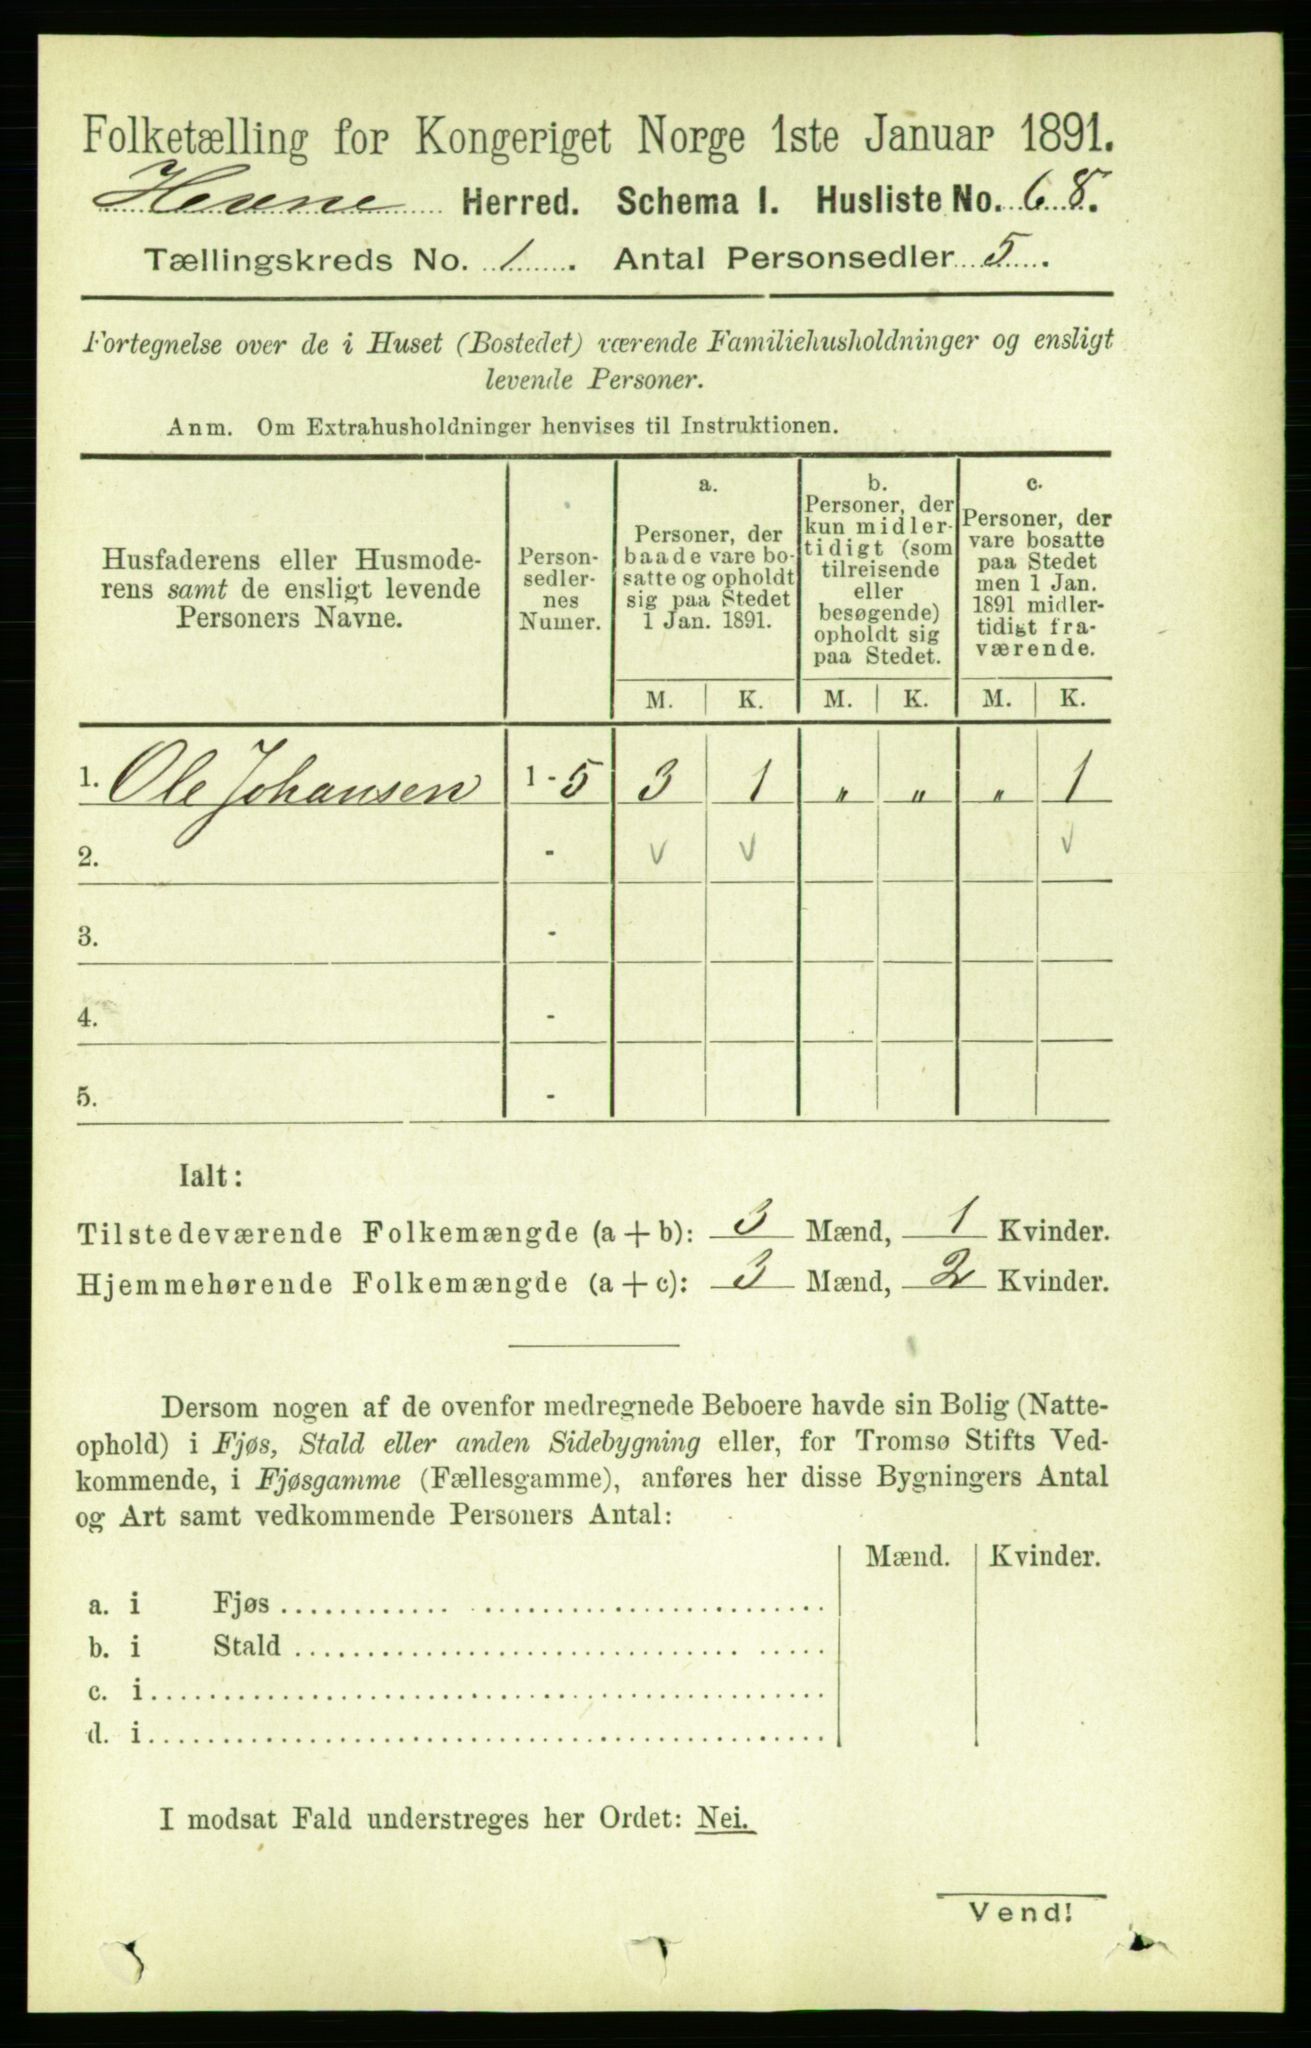 Folketælling for Kongeriget Norge 1ste Januar 1891.
Hevne Herred. Schema I. Husliste No. 68.
Tællingskreds No. 1. Antal Personsedler 5.
Fortegnelse over de i Huset (Bostedet) værende Familiehusholdninger og ensligt
levende Personer.
Anm. Om Extrahusholdninger henvises til Instruktionen.
Husfaderens eller Husmode-
rens samt de ensligt levende
Personers Navne.
Person-
sedler-
nes
Numer.
a.
Personer, der
baade vare bo-
satte og opholdt
sig paa Stedet
1 Jan. 1891.
b.
Personer, der
kun midler-
tidigt (som
tilreisende
eller
besøgende)
opholdt sig
paa Stedet.
c.
Personer, der
vare bosatte
paa Stedet
men 1 Jan.
1891 midler-
tidigt fra-
værende.
M. K. M. K. M. K.
1. Ole Johansen 1 - 5 3 1 " " " 1
2. - v v v
3. -
4. -
5. -
Ialt:
Tilstedeværende Folkemængde (a + b): 3 Mænd, 1 Kvinder.
Hjemmehørende Folkemængde (a + c): 3 Mænd, 2 Kvinder.
Dersom nogen af de ovenfor medregnede Beboere havde sin Bolig (Natte-
ophold) i Fjøs, Stald eller anden Sidebygning eller, for Tromsø Stifts Ved-
kommende, i Fjøsgamme (Fællesgamme), anføres her disse Bygningers Antal
og Art samt vedkommende Personers Antal:
Mænd. Kvinder.
a. i Fjøs
b. i Stald
c. i
d. i
I modsat Fald understreges her Ordet: Nei.
Vend!